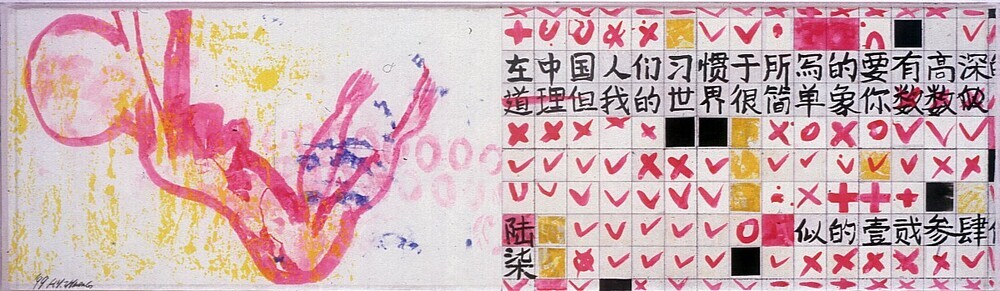 在中国人们习惯于所写的要有高深
道理但我的世界很简单象你数数似
陆 似的壹贰参肆
柒